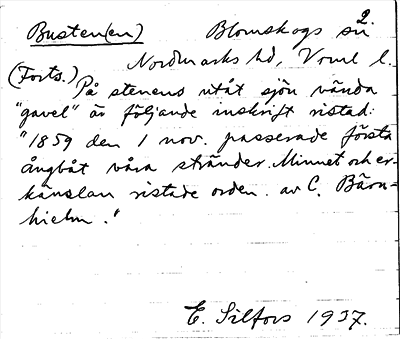 Busten(en) Blomskogs sn 2.
Nordmarks hd, Vrml l.
(Forts.)
På stenens utåt sjön vända
"gavel" är följande inskrift ristad:
"1859 den 1 nov. passerade första
ångbåt våra stränder. Minnet och er-
känslan ristade orden. av C. Bärn-
hielm."
E. Silfors 1937.